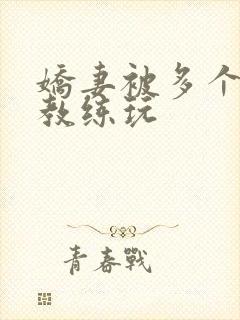 嬌妻被多个
教练玩
青春戰